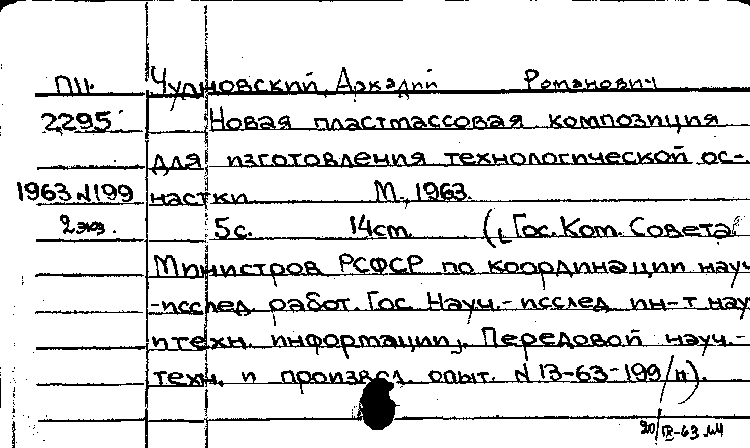 П11. Чудновский, Аркадий Романович
2295 Новая пластмассовая композиция
для изготовления технологической ос-
1963 N199 настки М., 1963.
2 экз. 5с. 14ст. (Гос. Ком. Совета
Министров РСФСР по координации науч
-исслед работ. Гос. Науч.-исслед ин-т нау
и техн. информации). Передовой науч.-
техн. и произвсд. опыт. N 13-63-199/п).
20/IX-63